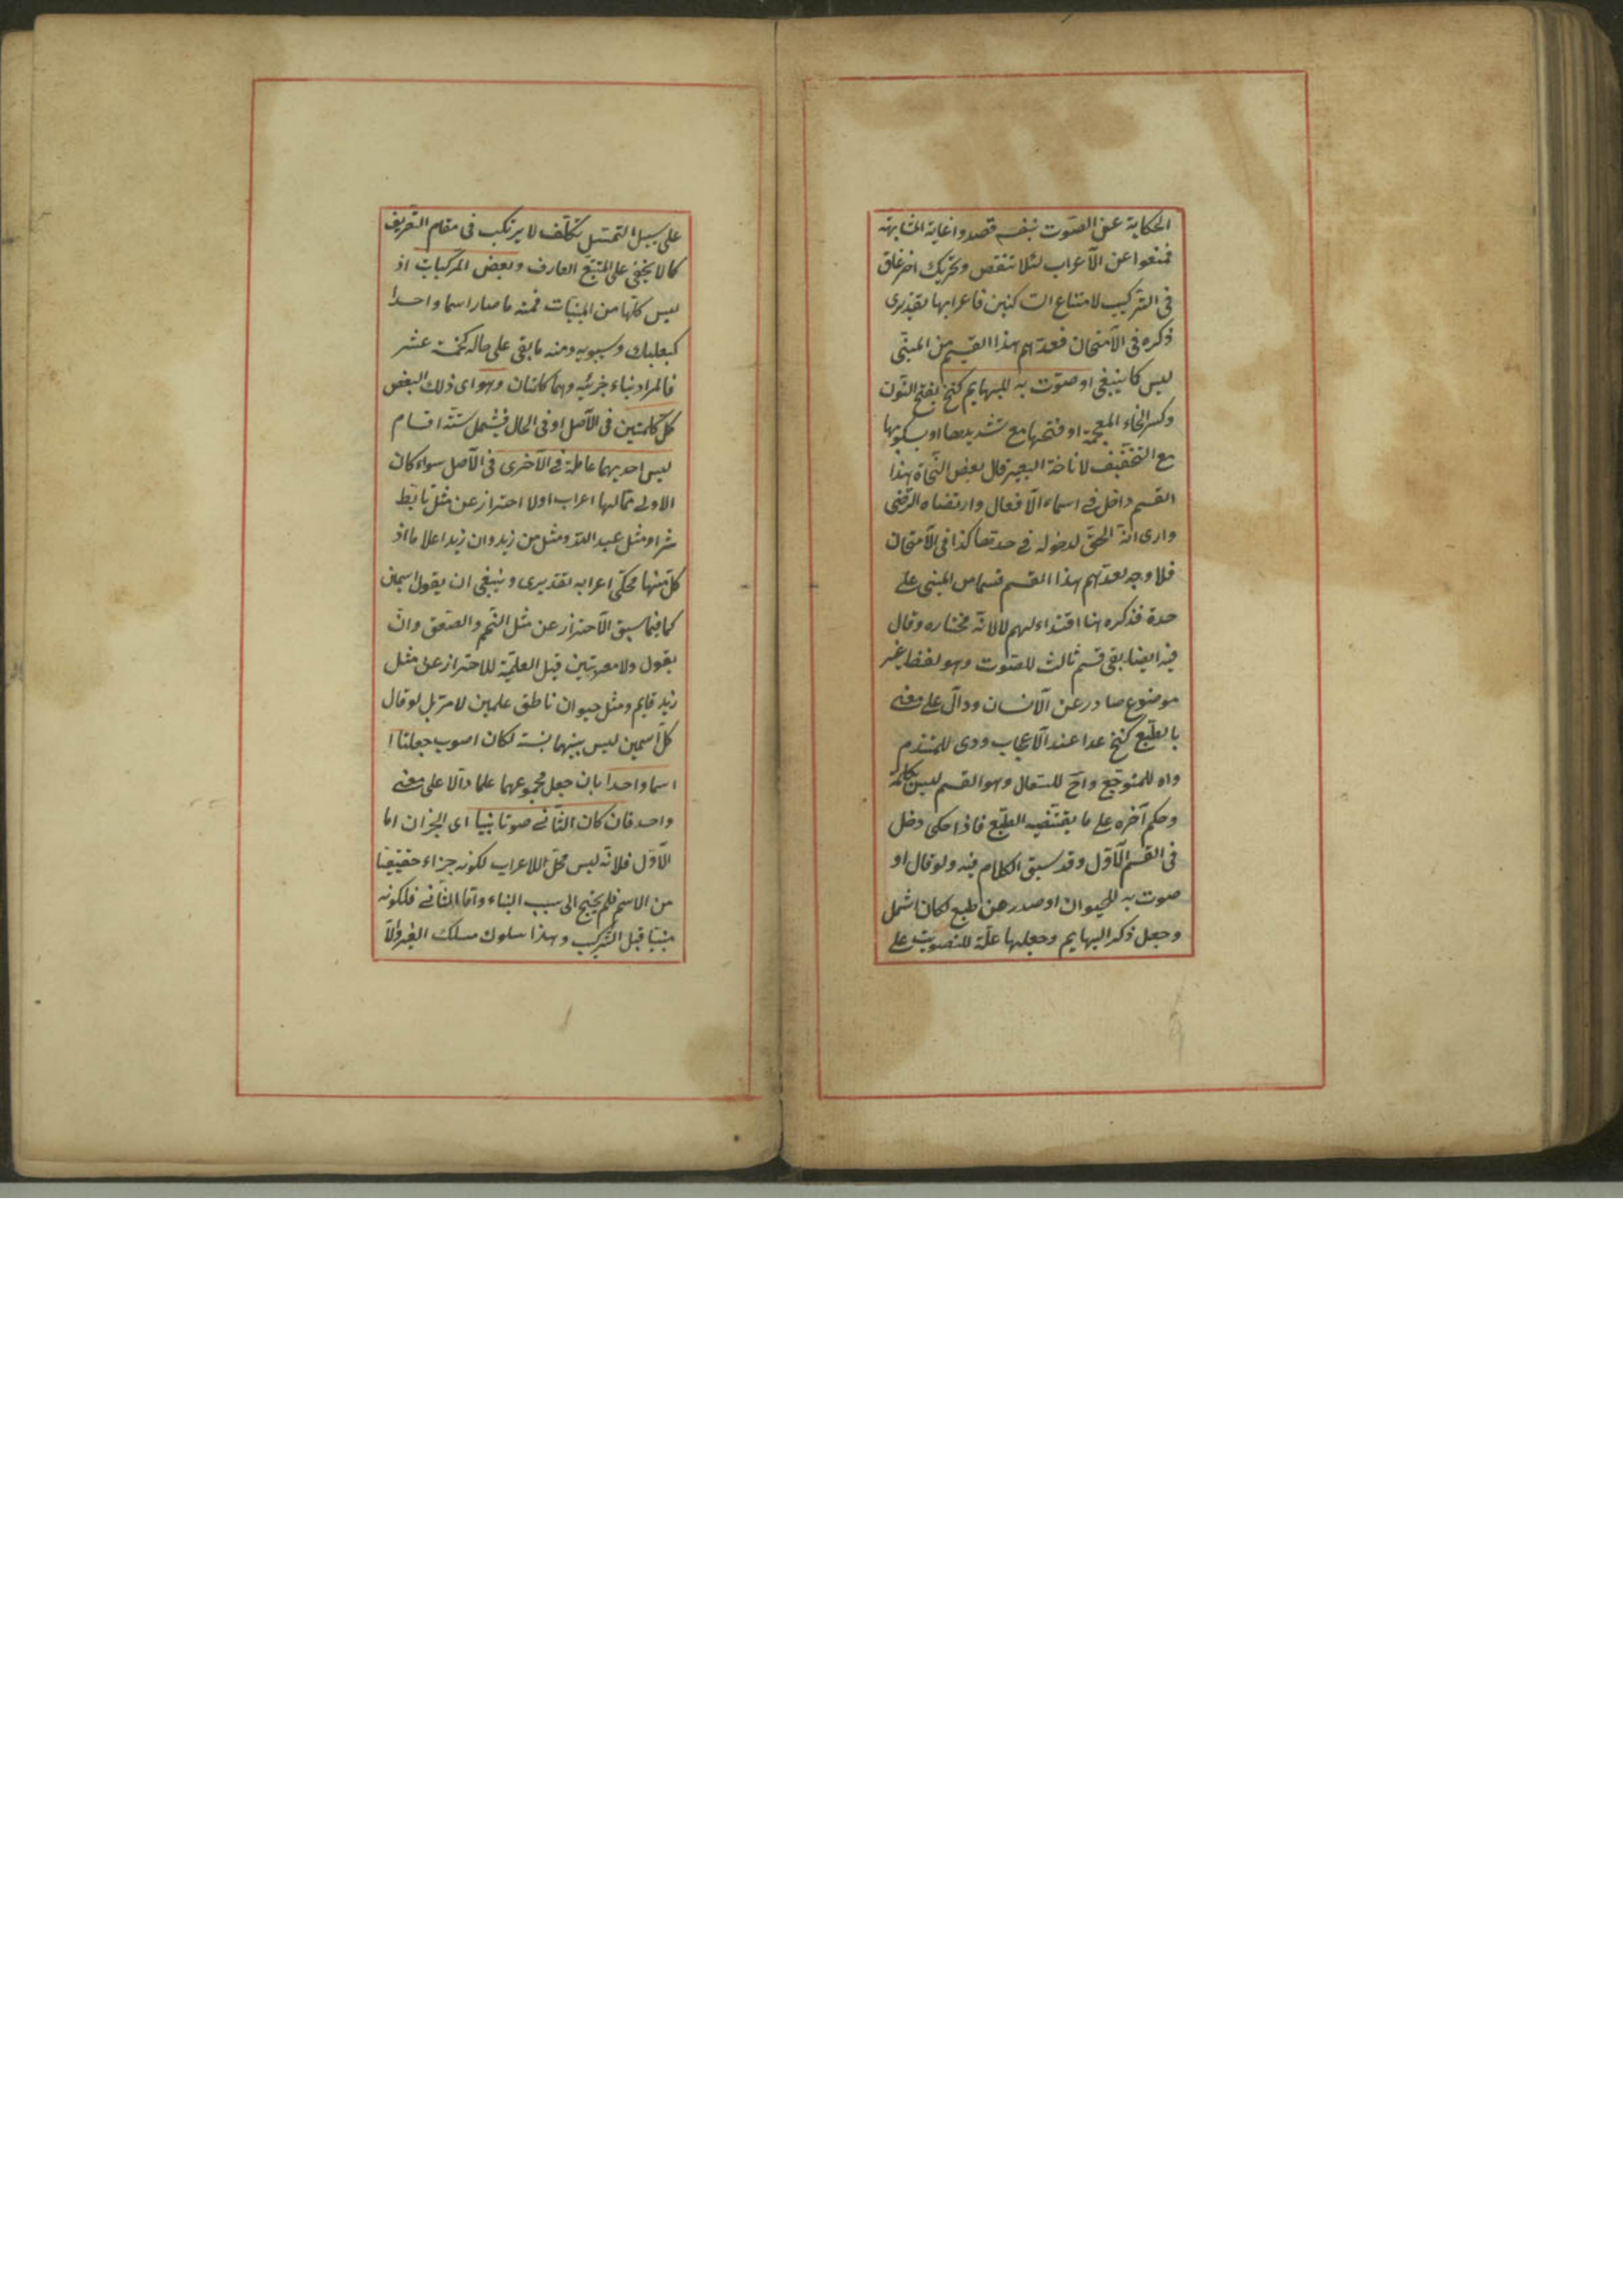 الحكاية عن الصّوت بنفسه قصدوا غاية المشابهة
فمنعوا عن الآعراب لئلا تنقص وتحريك اخر غاق
فى التركيب لامتناع الساكنين فاعرابها تقديرى
ذكره فى الآمتحان فعدّهم هذا القسم من المبنى
ليس كما ينبغى او صوّت به للبهايم كنخ بفتح النّون
وكسر الخاء المعجمة او فتحها مع تشديدها او بسكونها
مع التخفيف لاناخة البعير قال بعض النّحاة هذا
القسم داخل فى اسماء الآفعال وارتضاه الرّضى
وارى انّه الحقّ لدخوله فى حدّها كذا فى الآمتحان
فلا وجه لعدّهم هذا القسم قسما من المبنى على
حدة فذكره هنا اقتداء لهم لا لانّه مختاره وقال
فيه ايضا بقى قسم ثالث للصّوت وهو لفظ غير
موضوع صادر عن الآنسان ودالّ على معنى
بالطّبع كنخ عدا عند الآعجاب ووى للمتندم
واه للمتوجّع واحّ للسعال وهو القسم ليس بكلمة
وحكم آخره على ما يقتضيه الطّبع فاذا حكى دخل
فى القسم الآوّل وقد سبق الكلام فيه ولو قال او
صوت به للحيوان او صدر عن طبع لكان اشمل
وجعل ذكر البهايم وجعلها علّة للتصويت على
على سبيل التمثيل تكلّف لا يرتكب فى مقام التعريف
كما لا يخفى على المتتبّع العارف وبعض المركبات اذ
ليس كلّها من المبنيّات فمنه ما صار اسما واحدا
كبعلبك وسيبويه ومنه ما بقى على حاله كخمسة عشر
فالمراد بناء جزئيه وهما كلمتان وهو اى ذلك البعض
كلّ كلمتين فى الآصل او فى الحال فيشمل ستّة اقسام
ليس احديهما عاملة فى الآخرى فى الآصل سواء كان
الاولى ممّا لها اعراب اولا احتراز عن مثل تابّط
شرا ومثل عبد اللّه ومثل من زيد وان زيدا علاما اذ
كلّ منها محكّى اعرابه تقديرى وينبغى ان يقول اسمين
كما فيما سبق الآحتراز عن مثل النّجم والصّعق وان
يقول ولا معربتين قبل العلميّة للاحتراز عن مثل
زيد قايم ومثل حيوان ناطق علمين لا مرّ بل لو قال
كلّ اسمين ليس بينهما نسبة لكان اصوب جعلتا ا
اسما واحدا بان جعل مجموعهما علما دالّا على معنى
واحد فان كان الثّانى صوتا بنيا اى الجزان اما
الآوّل فلانّه ليس محلّ للاعراب لكونه جزاء حقيقيّا
من الاسم فلم يحتج الى سبب البناء وامّا الثّانى فلكونه
مبنيّا قبل التّركيب وهذا سلوك مسلك الغير والّا